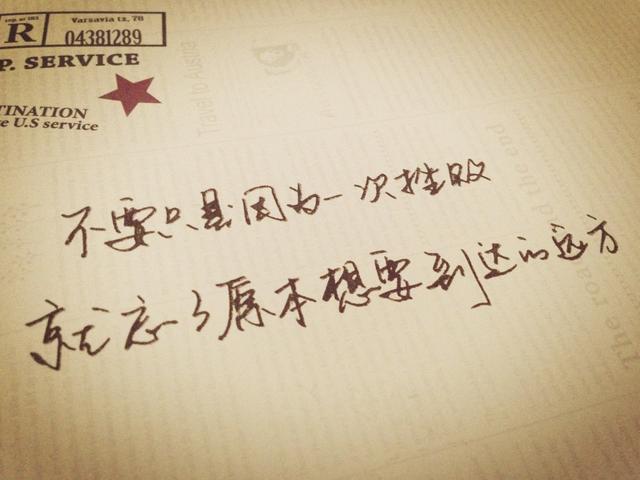 R
Varsavia tz, 70
04381289
P. SERVICE
TINATION
e U.S service
Travel to Austria
不要只是因为一次挫败
就忘了原本想要到达的远方
The road
d the end